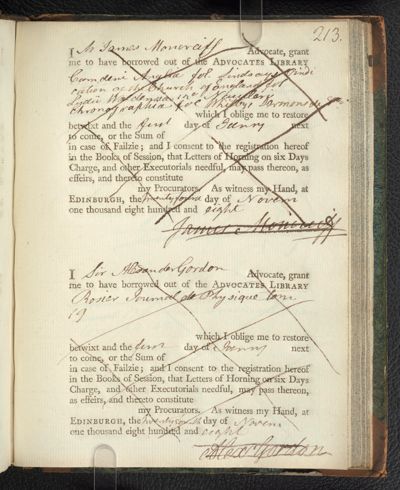 213.
I Mr James Moncrieff Advocate, grant
me to have borrowed out of the ADVOCATES LIBRARY
Camdeni Anglia fol. Lindsays Vindi
cation of the Church of England fol
which I oblige me to restore
betwixt and the first day of Janry next
to come, or the Sum of
in case of Failzie; and I consent to the registration hereof
in the Books of Session, that Letters of Horning on six Days
Charge, and other Executorials needful, may pass thereon, as
effeirs, and thereto constitute
my Procurators. As witness my Hand, at
EDINBURGH, the day of Novem
one thousand eight hundred and eight
James Moncrieff
I Sir Alexander Gordon Advocate, grant
me to have borrowed out of the ADVOCATES LIBRARY
Rosier Journal de Physique tom
19
which I oblige me to restore
betwixt and the day of Janry next
to come, or the Sum of
in case of Failzie; and I consent to the registration hereof
in the Books of Session, that Letters of Horning on six Days
Charge, and other Executorials needful, may pass thereon,
as effeirs, and thereto constitute
my Procurators. As witness my Hand, at
EDINBURGH, the day of Novem
one thousand eight hundred and eight
Alexr Gordon